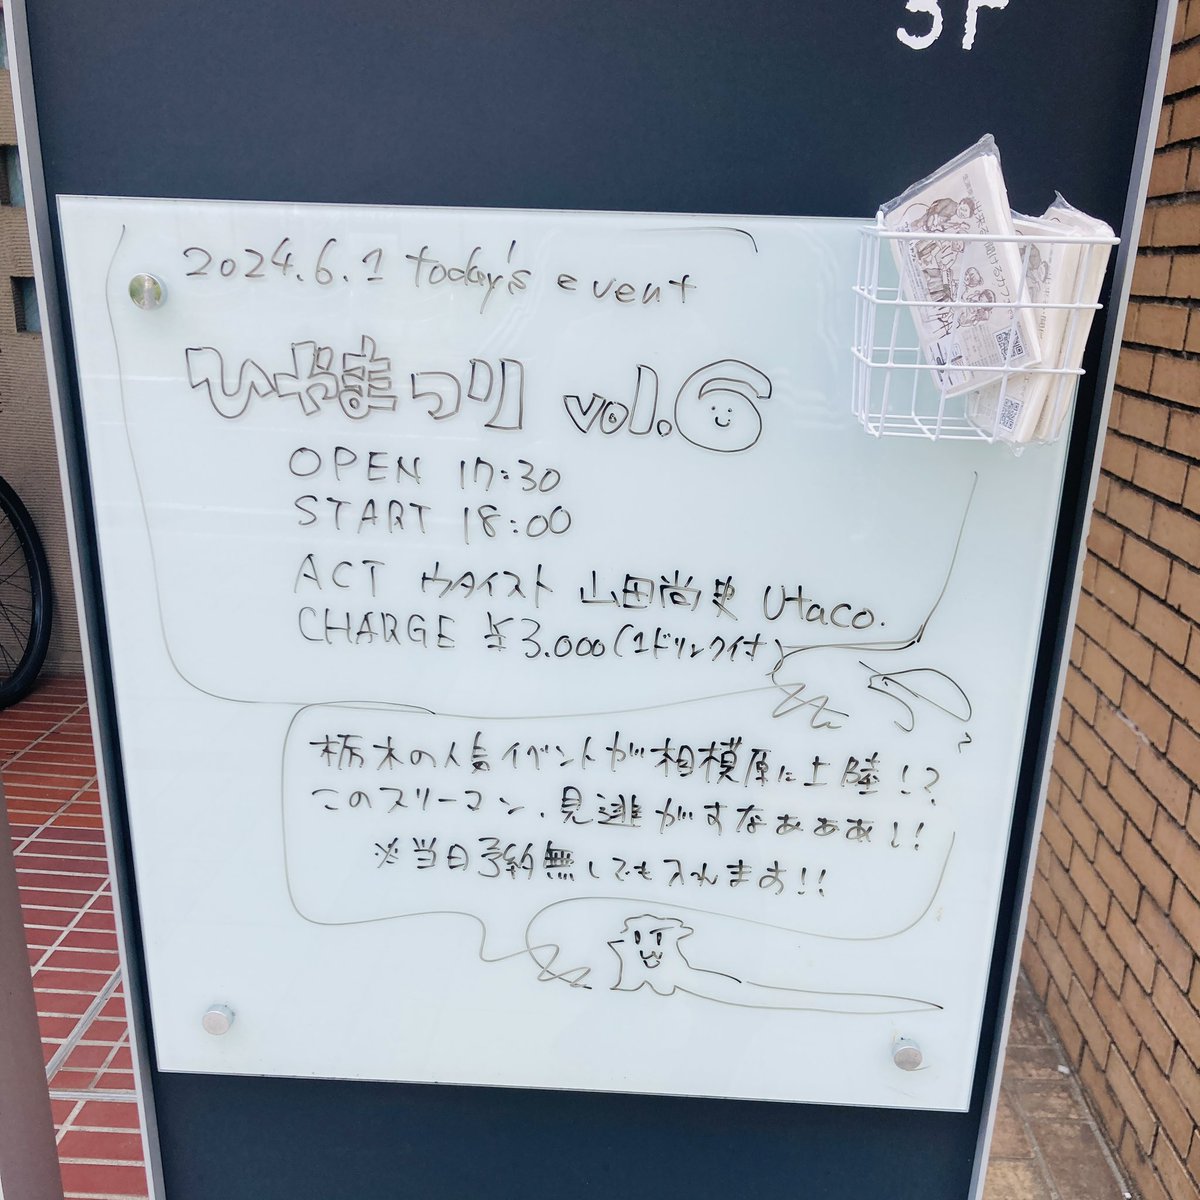 5F
2024.6.1 today's event
ひやまつり vol.6
OPEN 17:30
START 18:00
ACT ウタイスト 山田尚史 Utaco.
CHARGE ¥3.000(1ドリンク付)
栃木の人気イベントが相模原に上陸!?
このスリーマン、見逃がすなぁぁぁ!!
※当日予約無しでも入れます!!